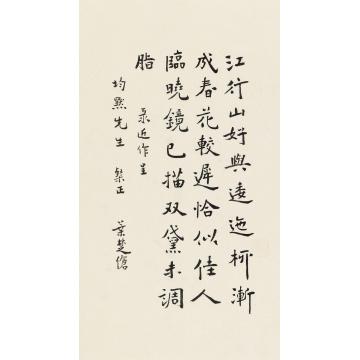 江行山好興逶迤柳漸
成春花較遲恰似佳人
臨曉鏡已描双黛未調
脂
录近作呈
均默先生 粲正
葉楚傖